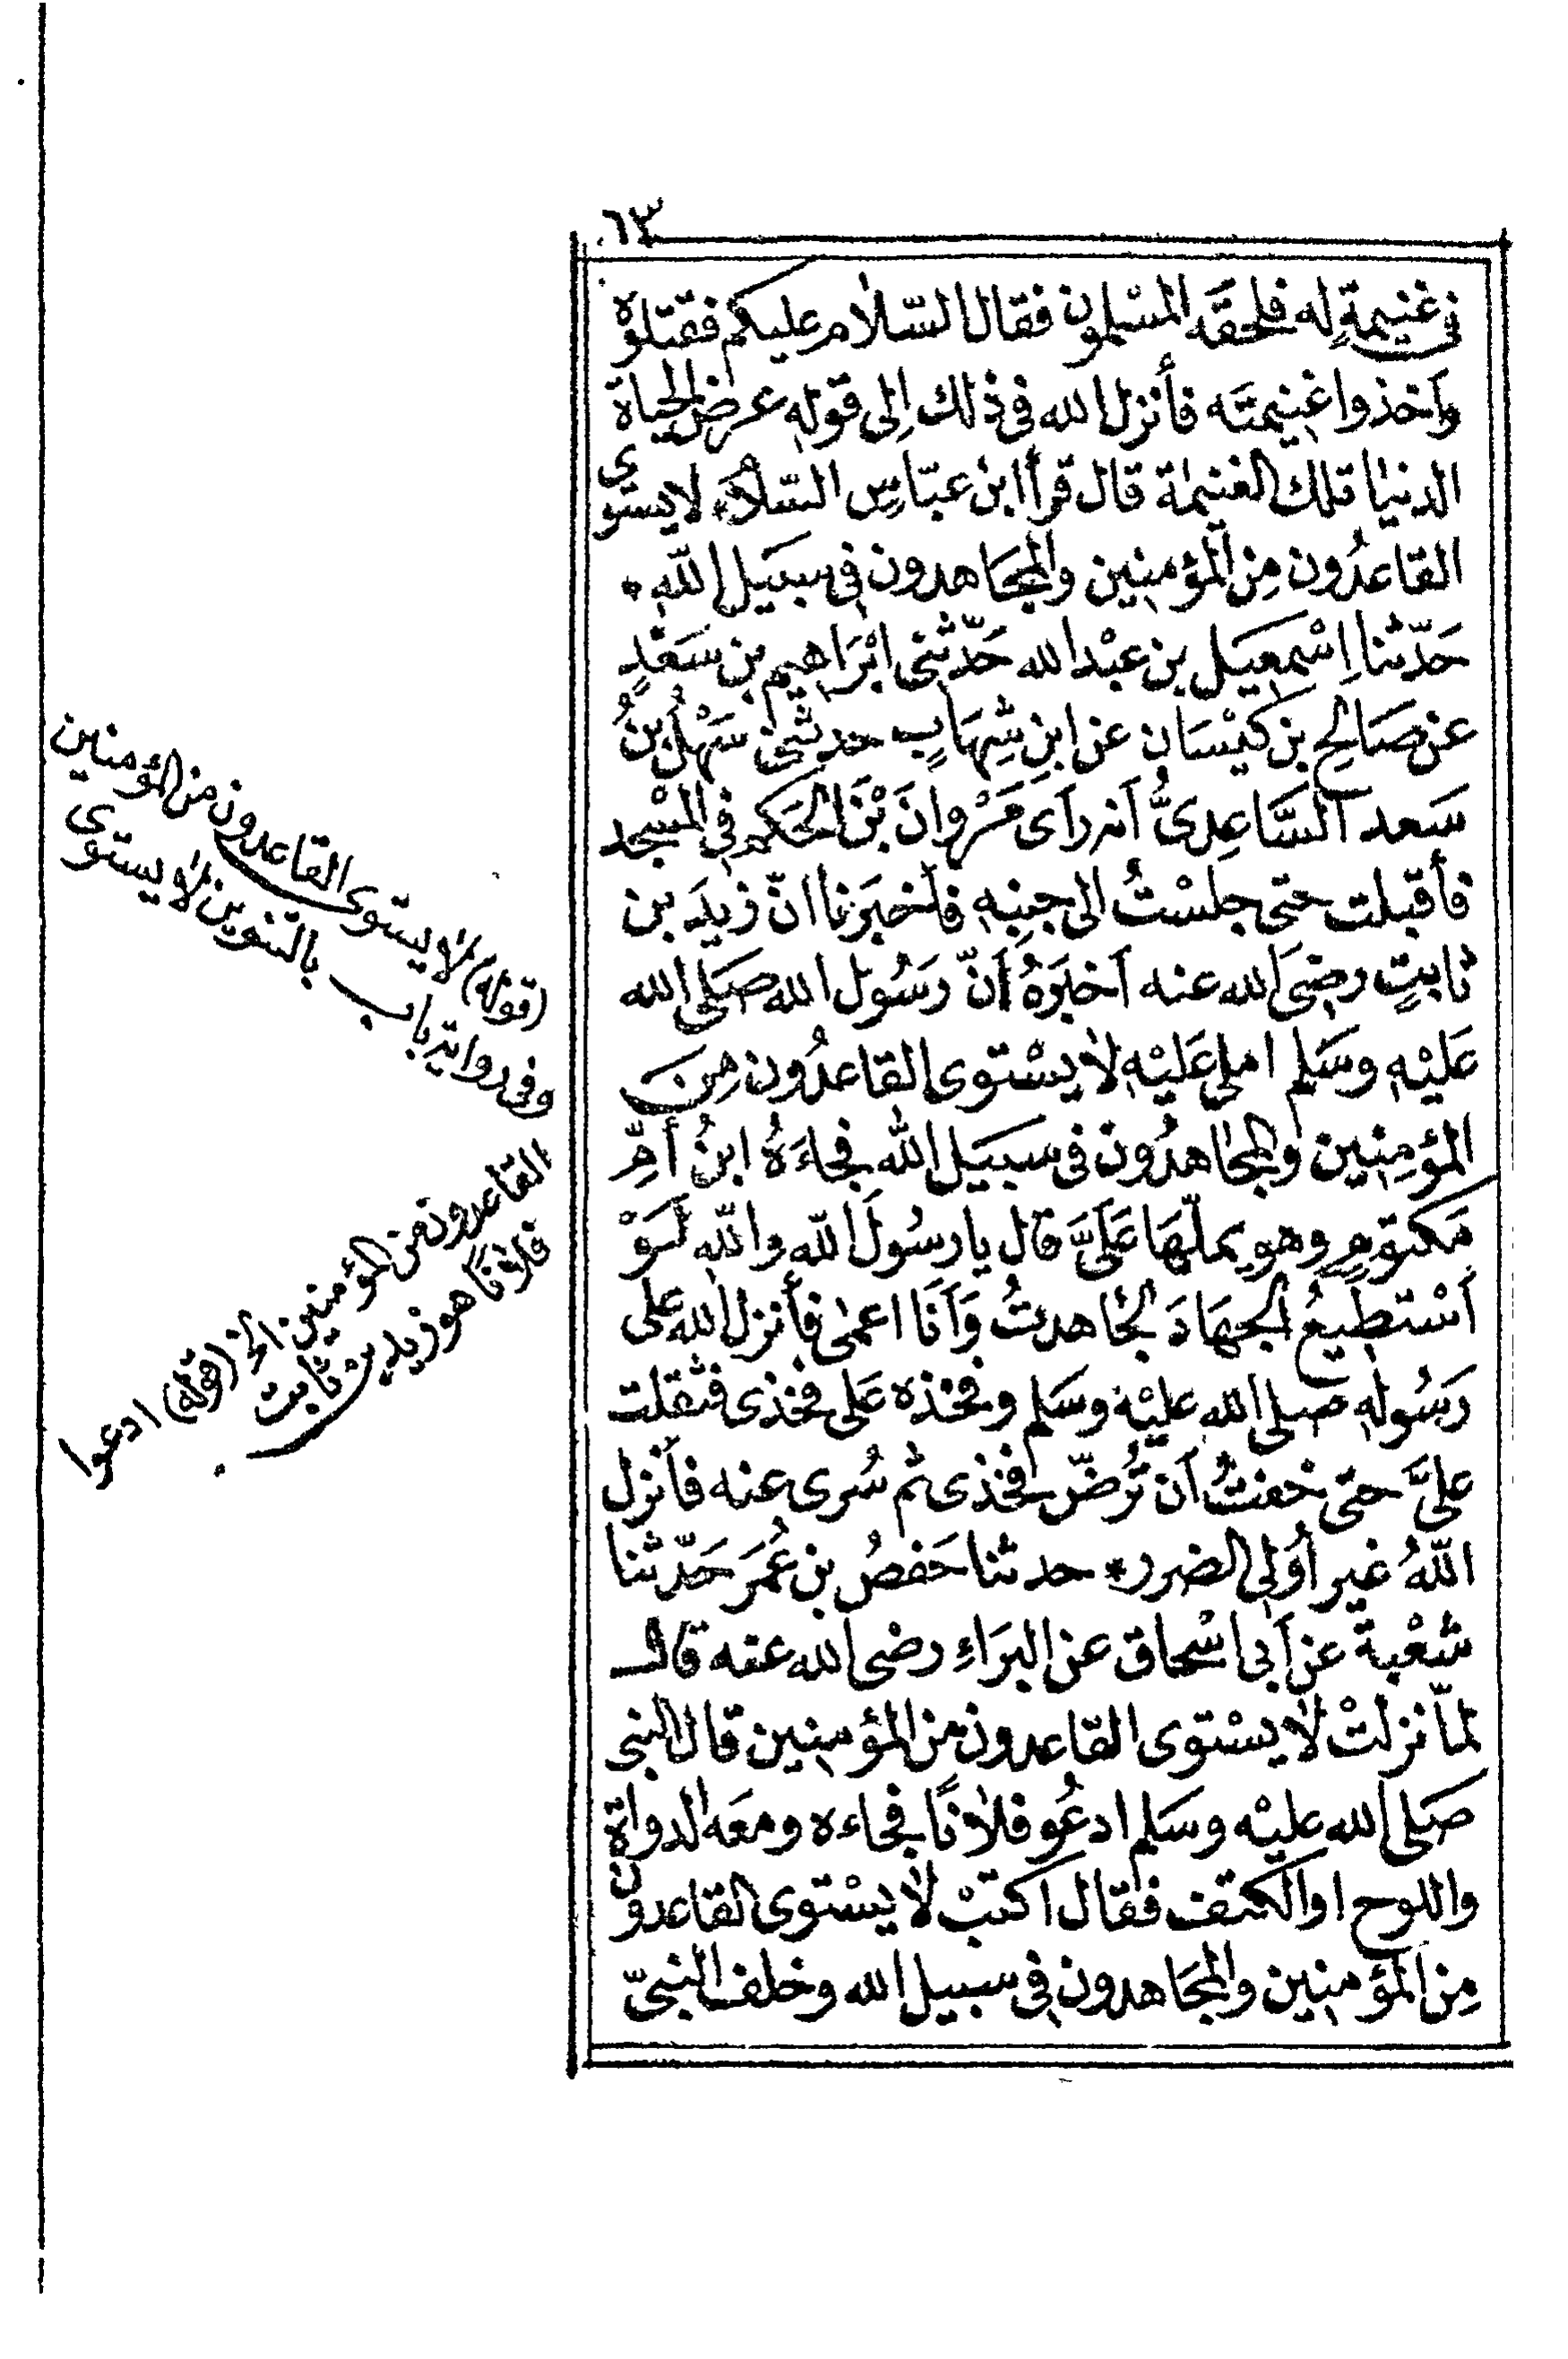 ٦٣
فى غنيمةٍ له فلحقَه المسْلمون فقال السّلام عليكم فقتلوْه
وأخذوا غنيمتَه فأنزل الله فى ذلك إلى قوله عرض الحياة
الدنيا تلك الغنيمة قال قرأ ابن عبّاسٍ السّلامَ لايستوى
القاعدُون مِن المؤمنِين والمجَاهدون فى سبيَل اللّه *
حَدّثنا إسْمعيَل بن عبْد الله حَدّثنى ابْرَاهيم بن سَعْدٍ
عن صَالحِ بن كيْسَان عن ابنِ شِهَابٍ حدثنى سَهْلُ بنُ
سَعد السَّاعِدىُّ أنه رَاَى مَرْوانَ بْنَ الحَكم فى المسْجد
فأقبلت حتى جلسْتُ الى جنبِه فأخبَرنا انّ زيدَ بن
ثابتٍ رضىَ الله عنه أخبَرَهُ أنّ رَسُول الله صَلى الله
عَليْه وسَلم املى عَليْه لايسْتوى القاعدُون مِن
المؤمِنِين والمجاهدُون فى سبيَل الله فجاءَهُ ابنُ أمِّ
مَكتوُمٍ وهو يملّهَا عَلَىَّ قال يارسُولَ اللّه واللّه لَوْ
أسْتطيعُ الجهَادَ لجاهدتُ وَأنَا اعمى فأنزل الله على
رَسُوله صلى الله عليْه وسَلم وفخذه عَلى فخذى فثقلت
علىَّ حتى خفتُ أن تُرضّ فخذى ثم سُرى عنه فأنزل
اللّهُ غير أولى الضرر * حدثنا حَفصُ بن عُمَرَ حَدّثنا
شعْبة عن أبى اسْحاق عن البرَاءِ رضى الله عنه قال
لمّا نزلتْ لايسْتوى القاعدون من المؤمنِين قال النبى
صَلى الله عليْه وسَلم ادعُو فلانًا فجاءه ومعَه الدواة
واللوح اوالكتف فقال اكتبْ لايسْتوى القاعدون
مِن المؤمنِين والمجَاهدون فى سبيل الله وخلف النبىّ
(قوله) لايستوى القاعدون من المؤمنين
وفى رواية باب بالتنوين لايستوى
القاعدون من المؤمنين الخ (قوله) ادعوا
فلاناً هو زيد بن ثابت